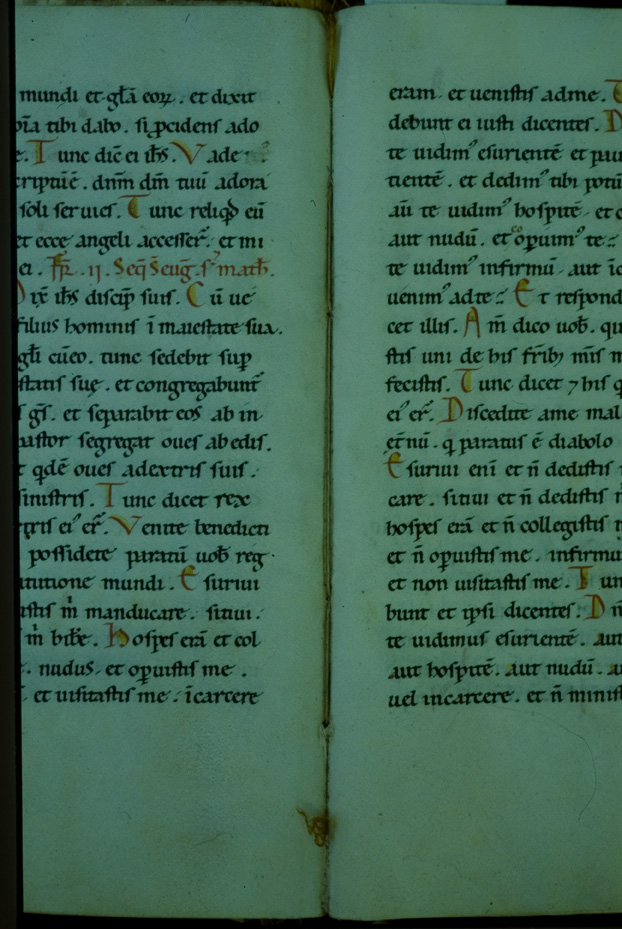 mundi et gl̄ā eoꝝ . et dixit
oīa tibi dabo . si ꝓcidens ado
e . Tunc dic̄ ei ih̄s . Vade
criptū ē . dn̄m dm̄ tuū adora
soli seruies . Tunc reliqͥd eū
et ecce angeli accesser̄ . et mi
ei . Fr̄ . ii . Seq̄ S eug̅ . s̄ math̄ .
Dix̄ ih̄s discip̄ suis . Cū ue
filius hominis ī maiestate sua .
gl̄i cū eo . tunc sedebit sup̄
statis suę . et congregabunt᷑
s gn̄s . et separabit eos ab in
astor segregat oues ab edis .
t qͥdē oues adextris suis .
sinistris . Tunc dicet rex
tris ei᾽ er̄ . Venite benedicti
possidete paratū uob̄ reg
titutione mundi . Esuriui
istis m̄ manducare . sitiui .
m̄ bib̄e . Hospes erā et col
. nudus . et oꝑuistis me .
et uisitastis me . ī carcere
eram . et uenistis ad me . T
debunt ei iusti dicentes . D
te uidim᾽ esurientē et pau
tientē . et dedim᾽ tibi potū
aū te uidim᾽ hospitē . et c
aut nudū . et cooꝑuim᾽ te :
te uidim᾽ infirmū . aut ī c
uenim᾽ ad te : Et respond
cet illis . Am̄ dico uob̄ . qu
stis uni de his fr̄ib; m̄is m
fecistis . Tunc dicet ⁊ his q
ei᾽ er̄ . Discedite a me mal
et̄nū . q̄ paratus ē diabolo
Esuriui eni et n̄ dedistis
care . sitiui et n̄ dedistis m̄
hospes erā et n̄ collegistis
et n̄ oꝑuistis me . infirmu
et non uisitastis me . Tun
bunt et ipsi dicentes . Dn̄
te uidimus esurientē . aut
aut hospitē . aut nudū . au
uel in carcere . et n̄ minist